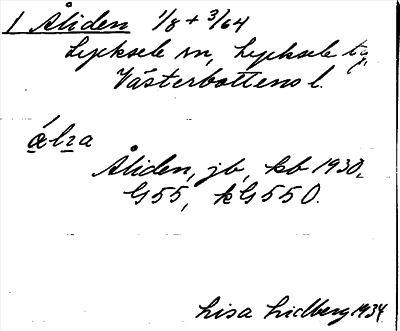 1 Åliden 1/8 + 3/64
Lycksele sn, Lycksele tg,
Västerbottens l.
Åliden, jb, kb 1930.
G55, kG550.
Lisa Lidberg 1934